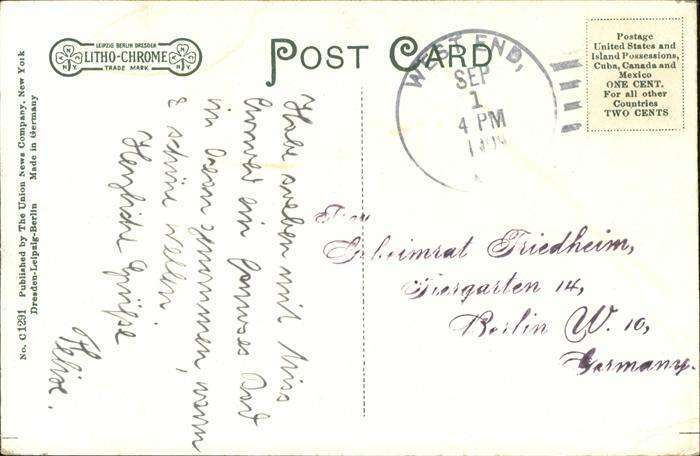 LEIPZIG BERLIN DRESDEN
LITHO-CHROME
TRADE MARK
POST CARD
WEST END,
SEP
1
4 PM
Postage
United States and
Island Possessions,
Cuba, Canada and
Mexico
ONE CENT.
For all other
Countries
TWO CENTS
No. C1291 Published by The Union News Company, New York
Dresden-Leipzig-Berlin Made in Germany
Habe soeben mit Miss
ein famoses Bad
im Ocean genommen, warm
& schöne Wellen
Herzliche Grüße
Felix.
Frau
Geheimrat Friedheim,
Tiergarten 14,
Berlin W. 10,
Germany.